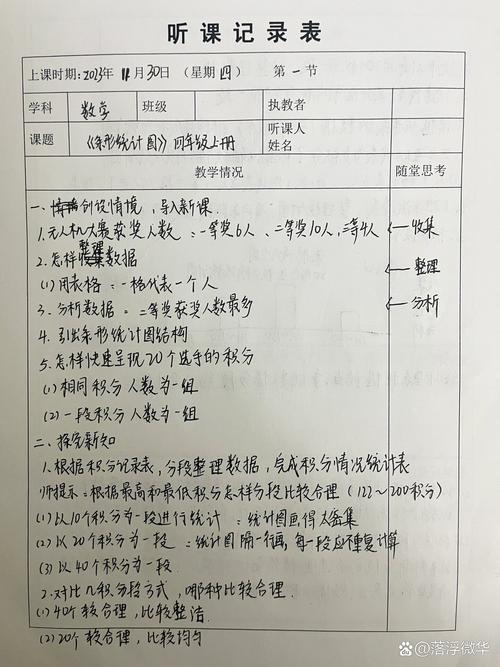 听课记录表
上课时期:2023年 11月30日 (星期四) 第一节
学科 数学 班级 执教者
课题 《条形统计图》四年级上册 听课人姓名
教学情况 随堂思考
一、创设情境,导入新课.
1.无人机大赛获奖人数:一等奖6人、二等奖10人,三等4人 ←收集
2.怎样整理数据 ←整理
(1)用表格:一格代表一个人
3.分析数据:二等奖获奖人数最多 ←分析
4.引出条形统计图结构
5.怎样快速呈现20个选手的积分
(1)相同积分人数为一组
(2)一段积分人数为一组
二、探究新知
1.根据积分记录表,分段整理数据,完成积分情况统计表
师提示:根据最高和最低积分怎样分段比较合理(122~200积分)
(1)以10个积分为一段进行统计:统计图画得太密集
(2)以20个积分为一段:统计图隔一行画,每一段应不重复计算
(3)以40个积分为一段.
2.对比几积分段方式,哪种比较合理.
(1)40个较合理,比较整洁.
(2)20个较合理,比较均匀
百家号/落浮微华